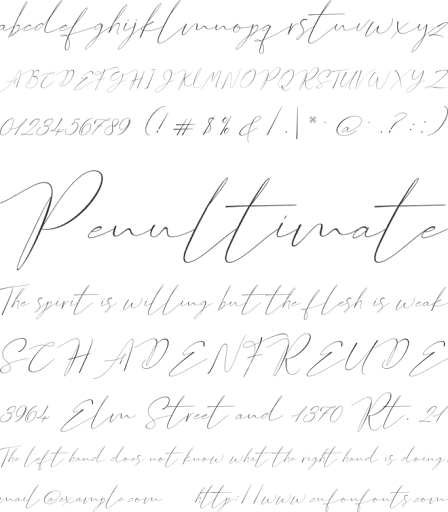 abcdefghijklmnopqrstuvwxyz
ABCDEFGHIJKLMNOPQRSTUVWXYZ
0123456789 (! # $ % & / . | * · @ · , ? : ; )
Penultimate
The spirit is willing but the flesh is weak
SCHADENFREUDE
3964 Elm Street and 1370 Rt. 21
The left hand does not know what the right hand is doing.
email@example.com http://www.cufonfonts.com